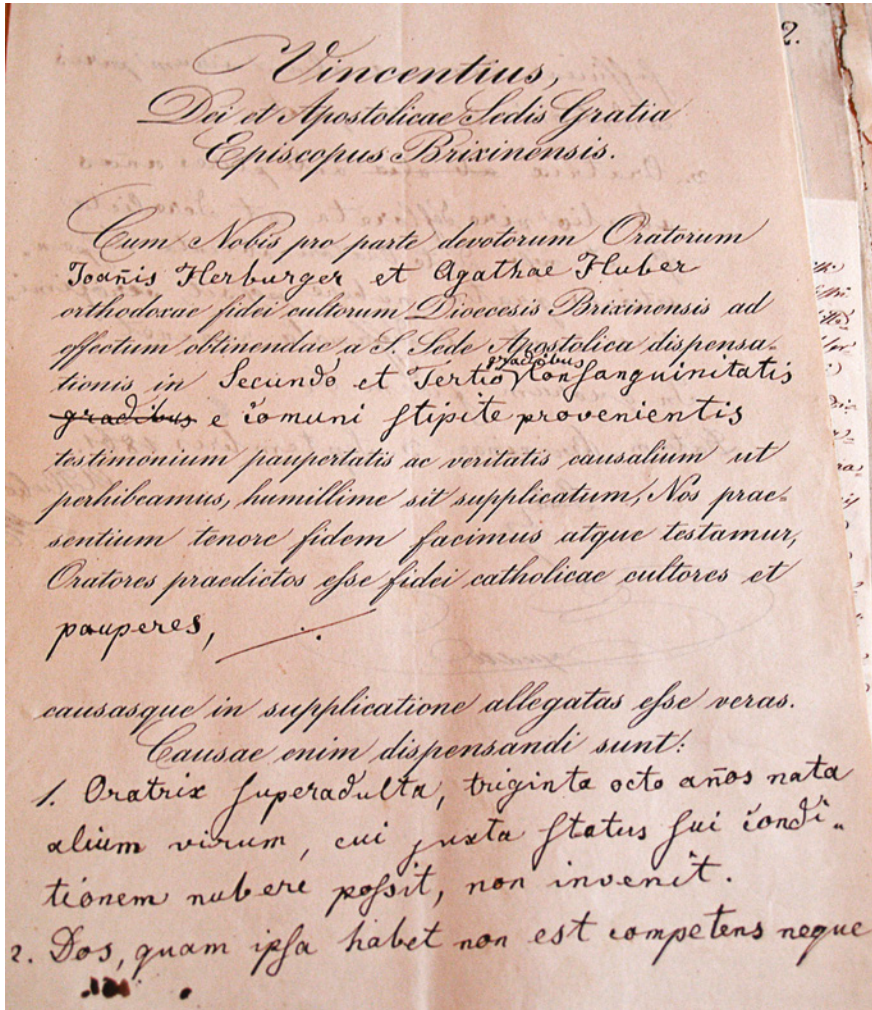 2.
Vincentius,
Dei et Apostolicae Sedis Gratia
Episcopus Brixinensis.
Cum Nobis pro parte devotorum Oratorum
Joañis Herburger et Agathae Huber
orthodoxae fidei cultorum Dioecesis Brixinensis ad
effectum obtinendae a S. Sede Apostolica dispensa-
gradibus
tionis in Secundo et Tertio Consanguinitatis
gradibus e comuni stipite provenientis
testimonium paupertatis ac veritatis causalium ut
perhibeamus, humillime sit supplicatum, Nos prae-
sentium tenore fidem facimus atque testamur,
Oratores praedictos eſse fidei catholicae cultores et
pauperes,
causasque in supplicatione allegatas eſse veras.
Causae enim dispensandi sunt:
1. Oratrix ſuperadulta, triginta octo años nata
alium virum, cui juxta ſtatus ſui condi-
tionem nubere poſsit, non invenit.
2. Dos, quam ipſa habet non est competens neque